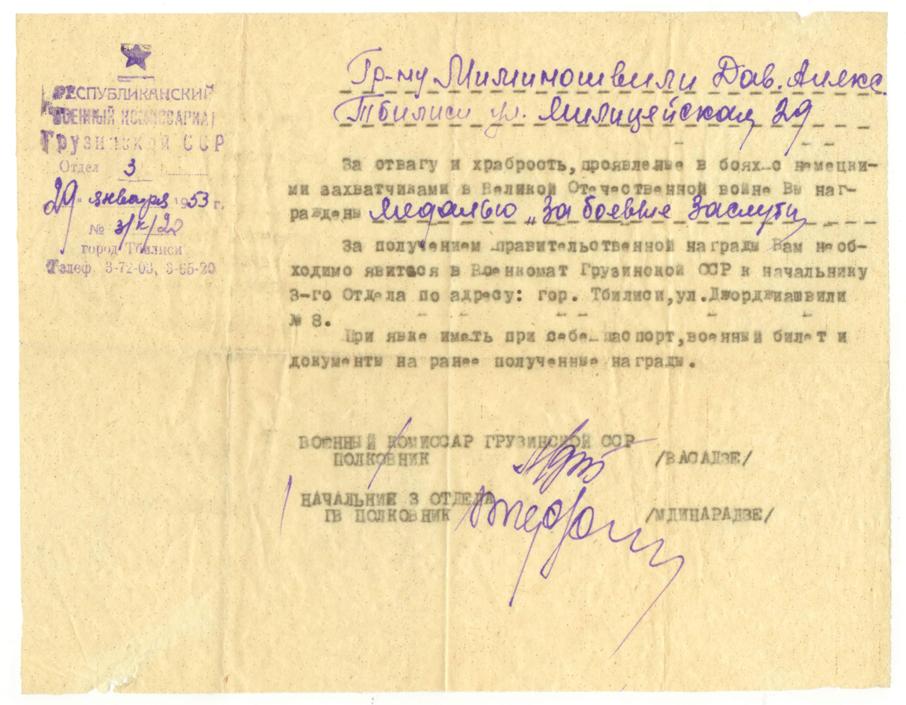 РЕСПУБЛИКАНСКИЙ
ВОЕННЫЙ КОМИССАРИАТ
Грузинской ССР
Отдел 3
29 января 1953 г.
№ 3/к/22
город Тбилиси
Телеф. 3-72-03, 3-65-20
Гр-ну Миминошвили Дав. Алекс.
Тбилиси ул. Милицейская 29
За отвагу и храбрость, проявленые в боях с немецки-
ми захватчиками в Великой Отечественной войне Вы наг-
раждены Медалью „За боевые Заслуги
За получением правительственной награды Вам необ-
ходимо явится в Военкомат Грузинской ССР к начальнику
3-го Отдела по адресу: гор. Тбилиси, ул. Джорджиашвили
№ 8.
При явке иметь при себе паспорт, военный билет и
документы на ранее полученные награды.
ВОЕННЫЙ КОМИССАР ГРУЗИНСКОЙ ССР
ПОЛКОВНИК /ВАСАДЗЕ/
НАЧАЛЬНИК 3 ОТДЕЛА
ГВ ПОЛКОВНИК /МДИНАРАДЗЕ/